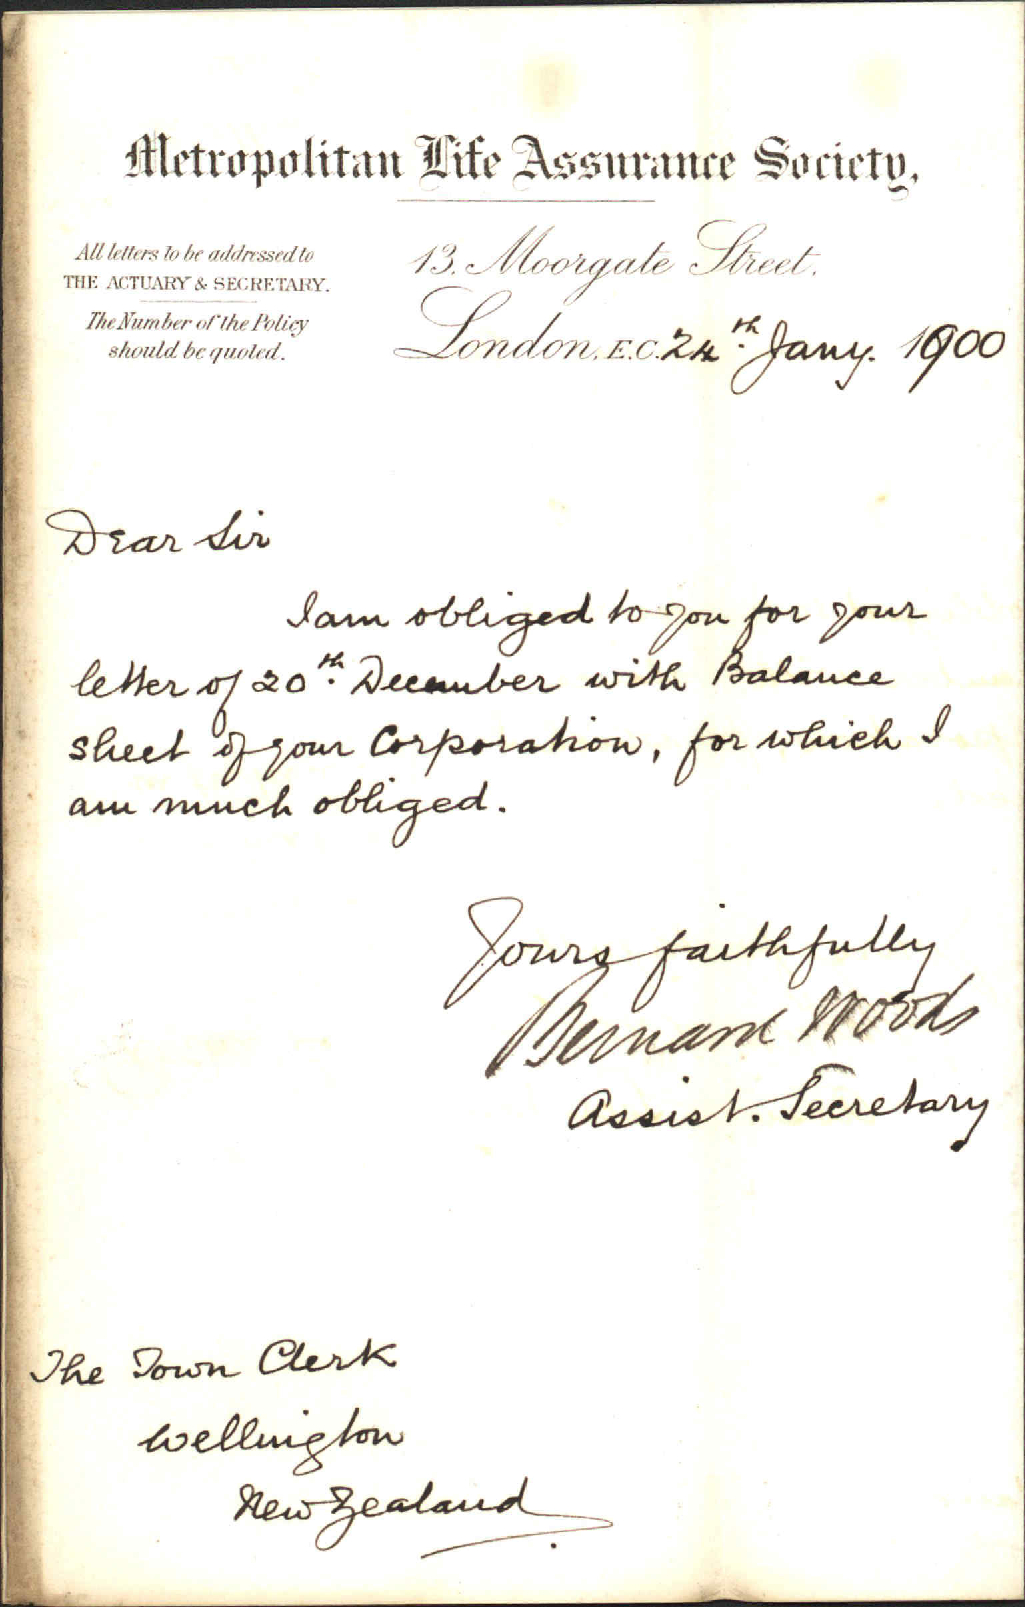 Metropolitan Life Assurance Society,
All letters to be addressed to
THE ACTUARY & SECRETARY.
The Number of the Policy
should be quoted.
13. Moorgate Street.
London, E.C. 24th Jany. 1900
Dear Sir
I am obliged to you for your
letter of 20th December with Balance
sheet of your Corporation, for which I
am much obliged.
Yours faithfully
Bernard Woods
Assist. Secretary
The Town Clerk
Wellington
New Zealand